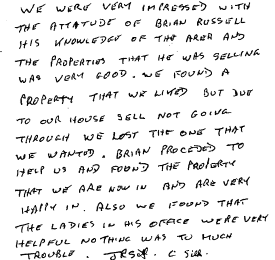 WE WERE VERY IMPRESSED WITH
THE ATTATUDE OF BRIAN RUSSELL
HIS KNOWLEDGE OF THE AREA AND
THE PROPERTIES THAT HE WAS SELLING
WAS VERY GOOD. WE FOUND A
PROPERTY THAT WE LIKED BUT DUE
TO OUR HOUSE SELL NOT GOING
THROUGH WE LOST THE ONE THAT
WE WANTED. BRIAN PROCEDED TO
HELP US AND FOUND THE PROPERTY
THAT WE ARE NOW IN AND ARE VERY
HAPPY IN. ALSO WE FOUND THAT
THE LADIES IN HIS OFFICE WERE VERY
HELPFUL NOTHING WAS TO MUCH
TROUBLE.